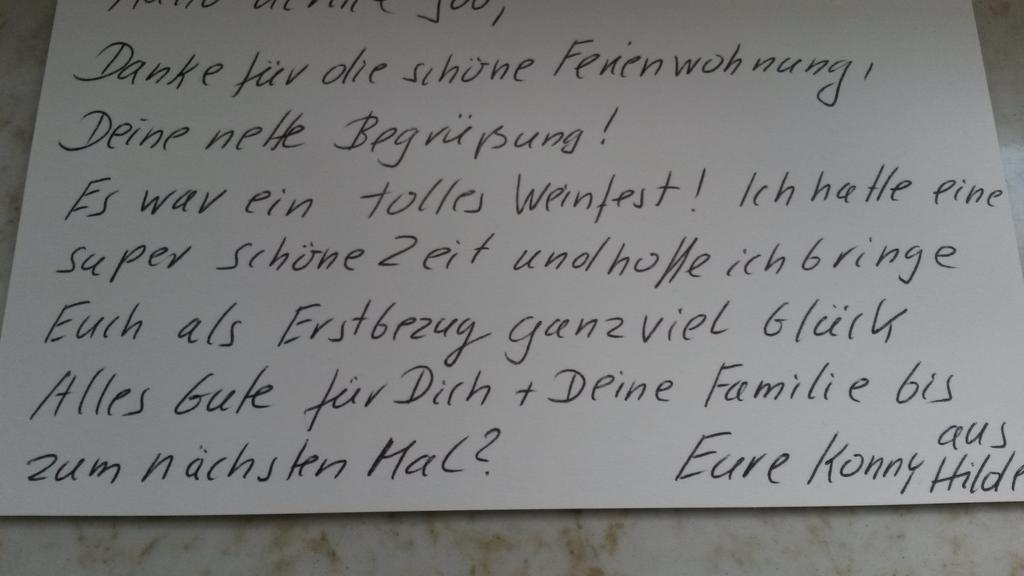 Danke für die schöne Ferienwohnung,
Deine nette Begrüßung!
Es war ein tolles Weinfest! Ich hatte eine
super schöne Zeit und hoffe ich bringe
Euch als Erstbezug ganz viel Glück
Alles Gute für Dich + Deine Familie bis
zum nächsten Mal?
Eure Konny aus